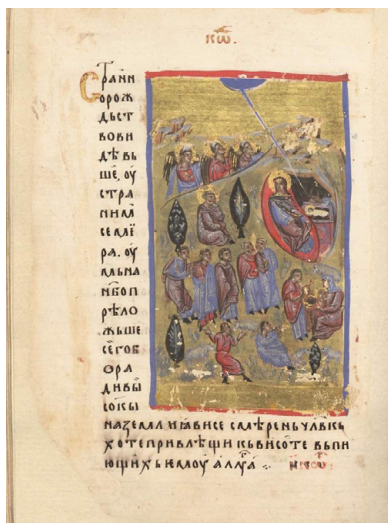 Страⷩн
орож
дьст
вови
дѣвь
ше, оу
стра
нимь
се мѥ
ра. оу
мьна
нб҃оп
рѣло
жьше
сегоб
ѡра
дивы
сокы
наземлиꙗвисе смѣреньчл҃вкь
хотепривлѣщи кьвисотѣ вьпи
ющихь ѥмоу алⷧгуꙗ